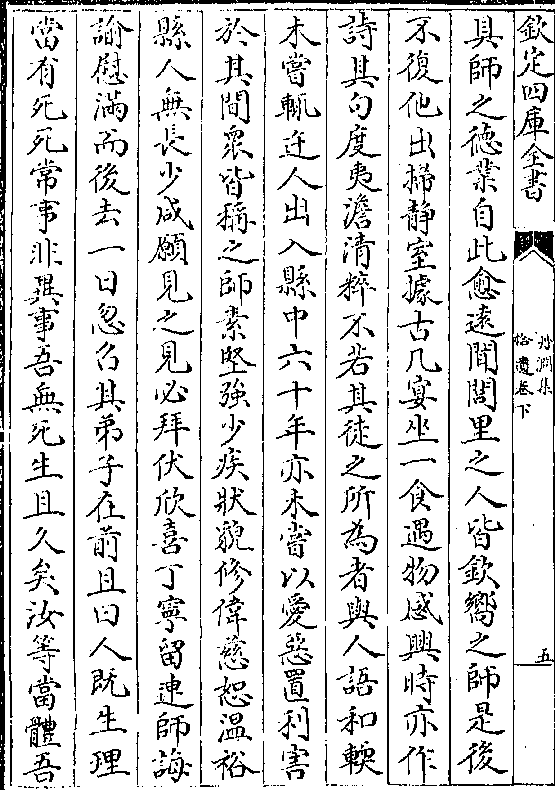 欽定四庫全書
丹淵集
拾遺卷下
五
具師之徳業自此愈遠聞閭里之人皆欽嚮之師是後
不復他出掃静室據古几宴坐一食遇物感興時亦作
詩其句度夷澹清粹不若其徒之所為者與人語和輭
未嘗輒迕人出入縣中六十年亦未嘗以愛惡置利害
於其間衆皆稱之師素堅強少疾狀貌修偉慈恕温裕
縣人無長少咸願見之見必拜伏欣喜丁寧留連師誨
諭慰滿而後去一日忽召其弟子在前且曰人既生理
當有死死常事非異事吾無死生且久矣汝等當體吾